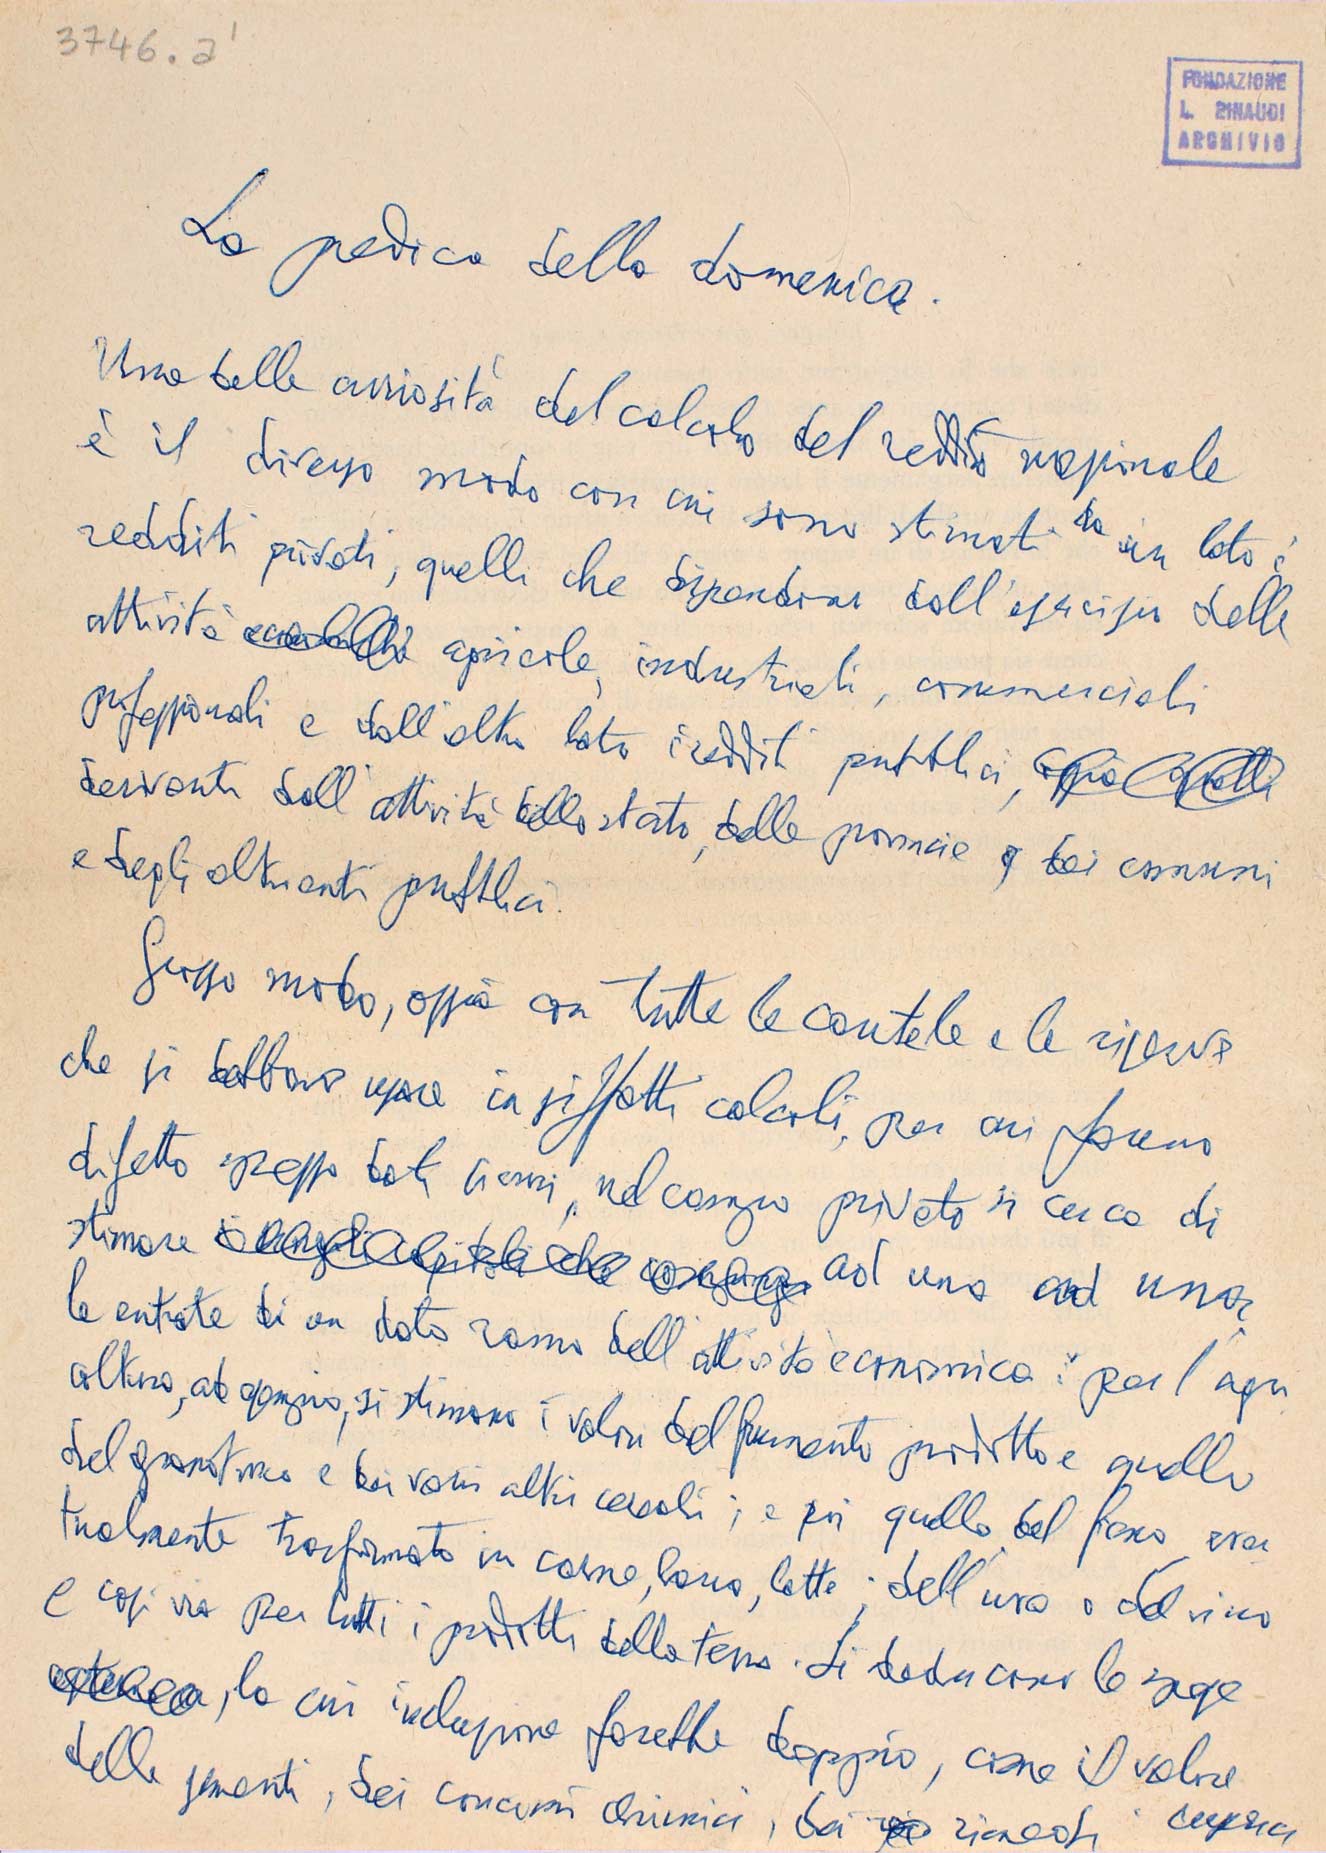 3746.a'
FONDAZIONE
L. EINAUDI
ARCHIVIO
La predica della domenica.
Una delle curiosità del calcolo del reddito nazionale
è il diverso modo con cui sono stimati da un lato i
redditi privati, quelli che dipendono dall'esercizio delle
attività agricole, industriali, commerciali
professionali e dall'altro lato i redditi pubblici, ossia quelli
derivanti dall'attività dello stato, delle provincie e dei comuni
e degli altri enti pubblici.
Grosso modo, ossia con tutte le cautele e le riserve
che si debbono usare in siffatti calcoli, per cui fanno
difetto spesso dati sicuri, nel campo privato si cerca di
stimare ad una ad una
le entrate di un dato ramo dell'attività economica: per l'agri
coltura, ad esempio, si stimano i valori del frumento prodotto e quello
del granoturco e dei vari altri cereali; e poi quello del fieno even
tualmente trasformato in carne, lana, latte; dell'uva o del vino
e così via per tutti i prodotti della terra. Si deducono le spese
, la cui inclusione farebbe doppio, come il valore
delle sementi, dei concimi chimici, dei rimedi